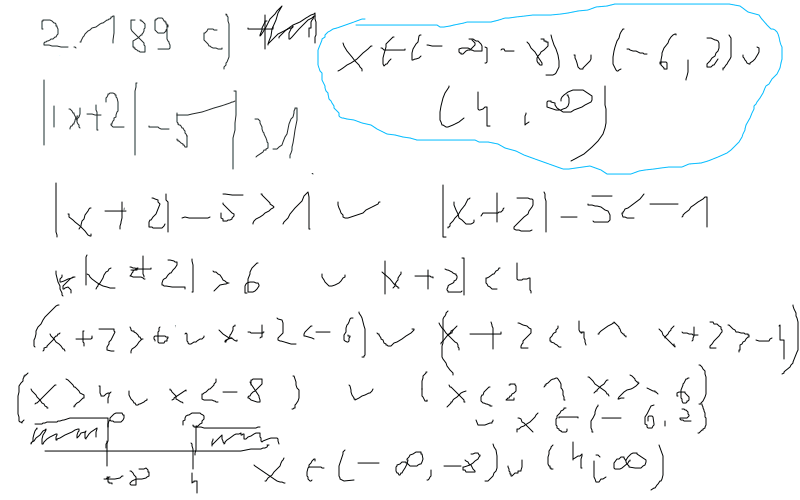 2.189 c)
x ∈ (-∞, -8) ∪ (-6, 2) ∪
(4, ∞)
||x+2| - 5| > 1
|x+2| - 5 > 1 ∨ |x+2| - 5 < -1
|x+2| > 6 ∨ |x+2| < 4
(x+2 > 6 ∨ x+2 < -6) ∨ (x+2 < 4 ∧ x+2 > -4)
(x > 4 ∨ x < -8) ∨ (x < 2 ∧ x > -6)
∨ x ∈ (-6, 2)
-8 4 x ∈ (-∞, -8) ∪ (4; ∞)